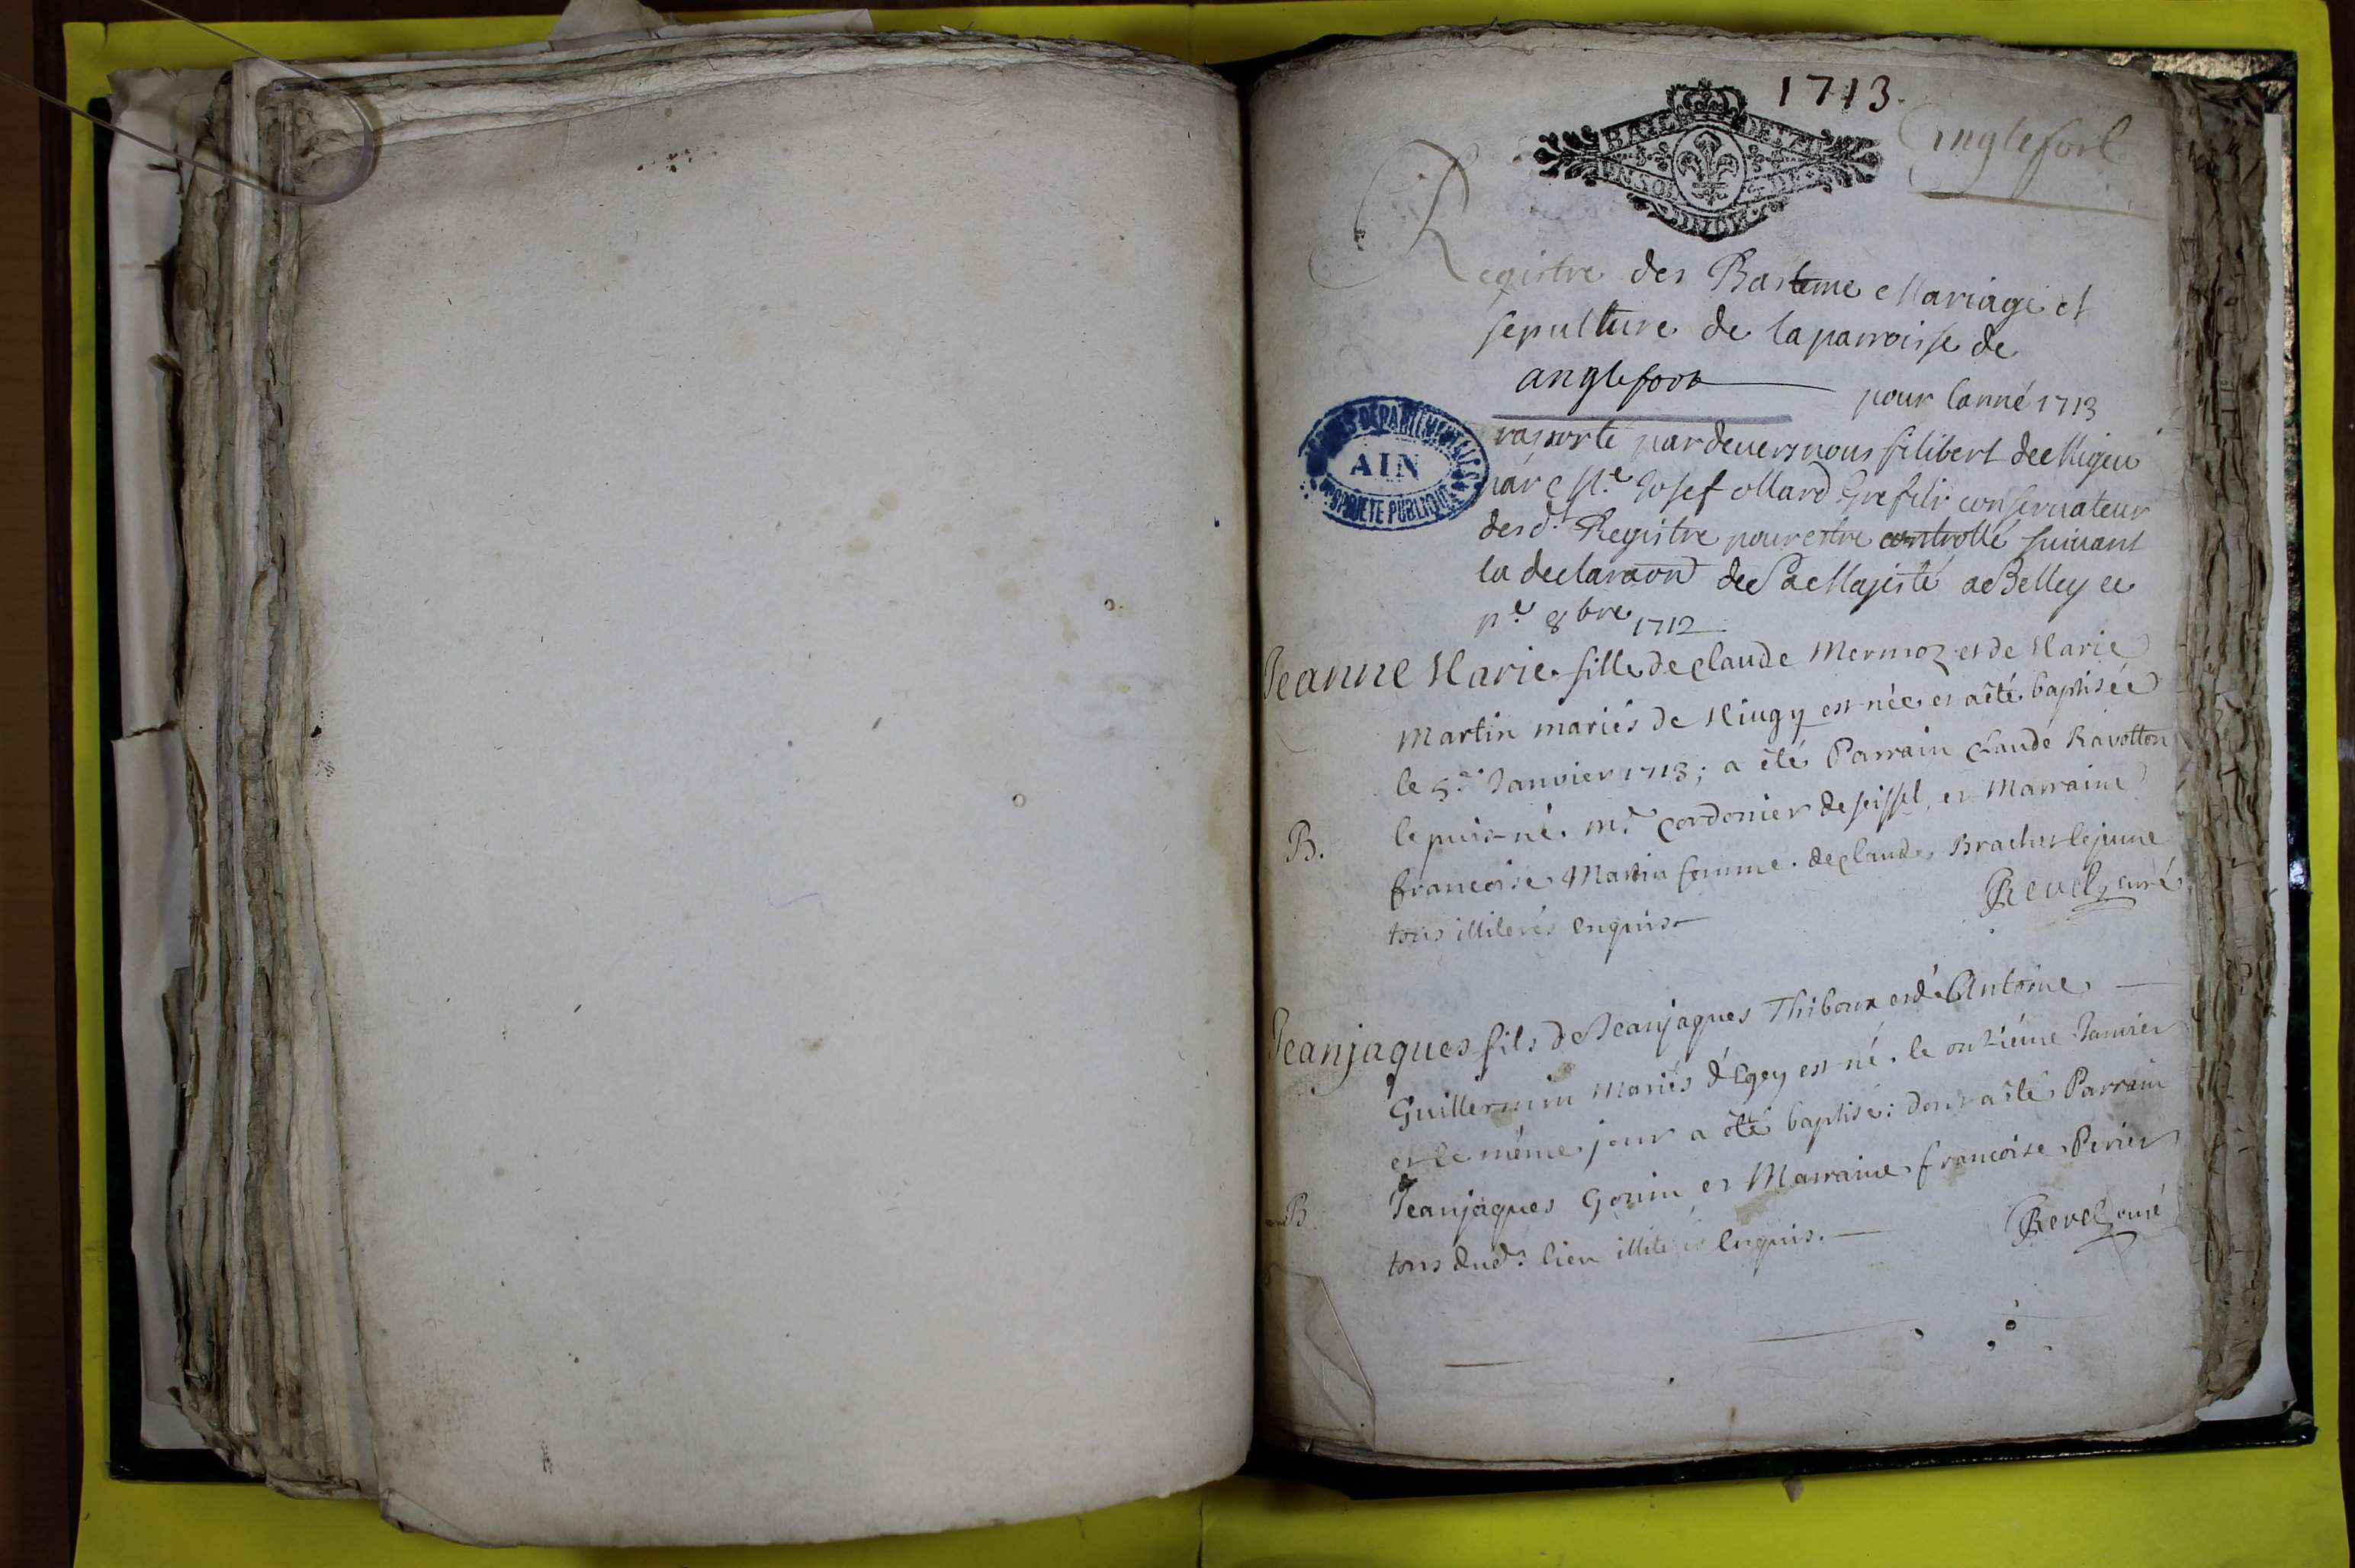 1713.
Anglefort
Registre des Basteme Mariage et
sepulture de la parroisse de
anglefort pour lanné 1713
raporté pardevers nous filibert de Migieu
par Me Josef ollard Grefier conservateur
desd. Registre pour estre controllé suivant
la declaraon de Sa Majesté a Belley ce
pe 8bre 1712
ARCHIVES DEPARTEMENTALES
AIN
PROPRIETE PUBLIQUE
Jeanne Marie fille de Claude Mermoz et de Marie
Martin mariés de Miugy est née et a été baptisée
le 5e Janvier 1713; a été Parrain Claude Ravotton
le puis-né, me Cordonier de seissel, et Marraine
B.
francoise Martin femme de Claude Brachet le jeune
tous illiterés enquis
Revel, curé
Jeanjaques fils de Jeanjaques Thiboux et d'Antoine
Guillermin Mariés d'Egey est né le onziéme Janvier
et le même jour a été baptisé: dont a été Parrain
Jeanjaques Gonin et Marraine francoise Perier
B
tous dud. lieu illiterés enquis.
Revel curé